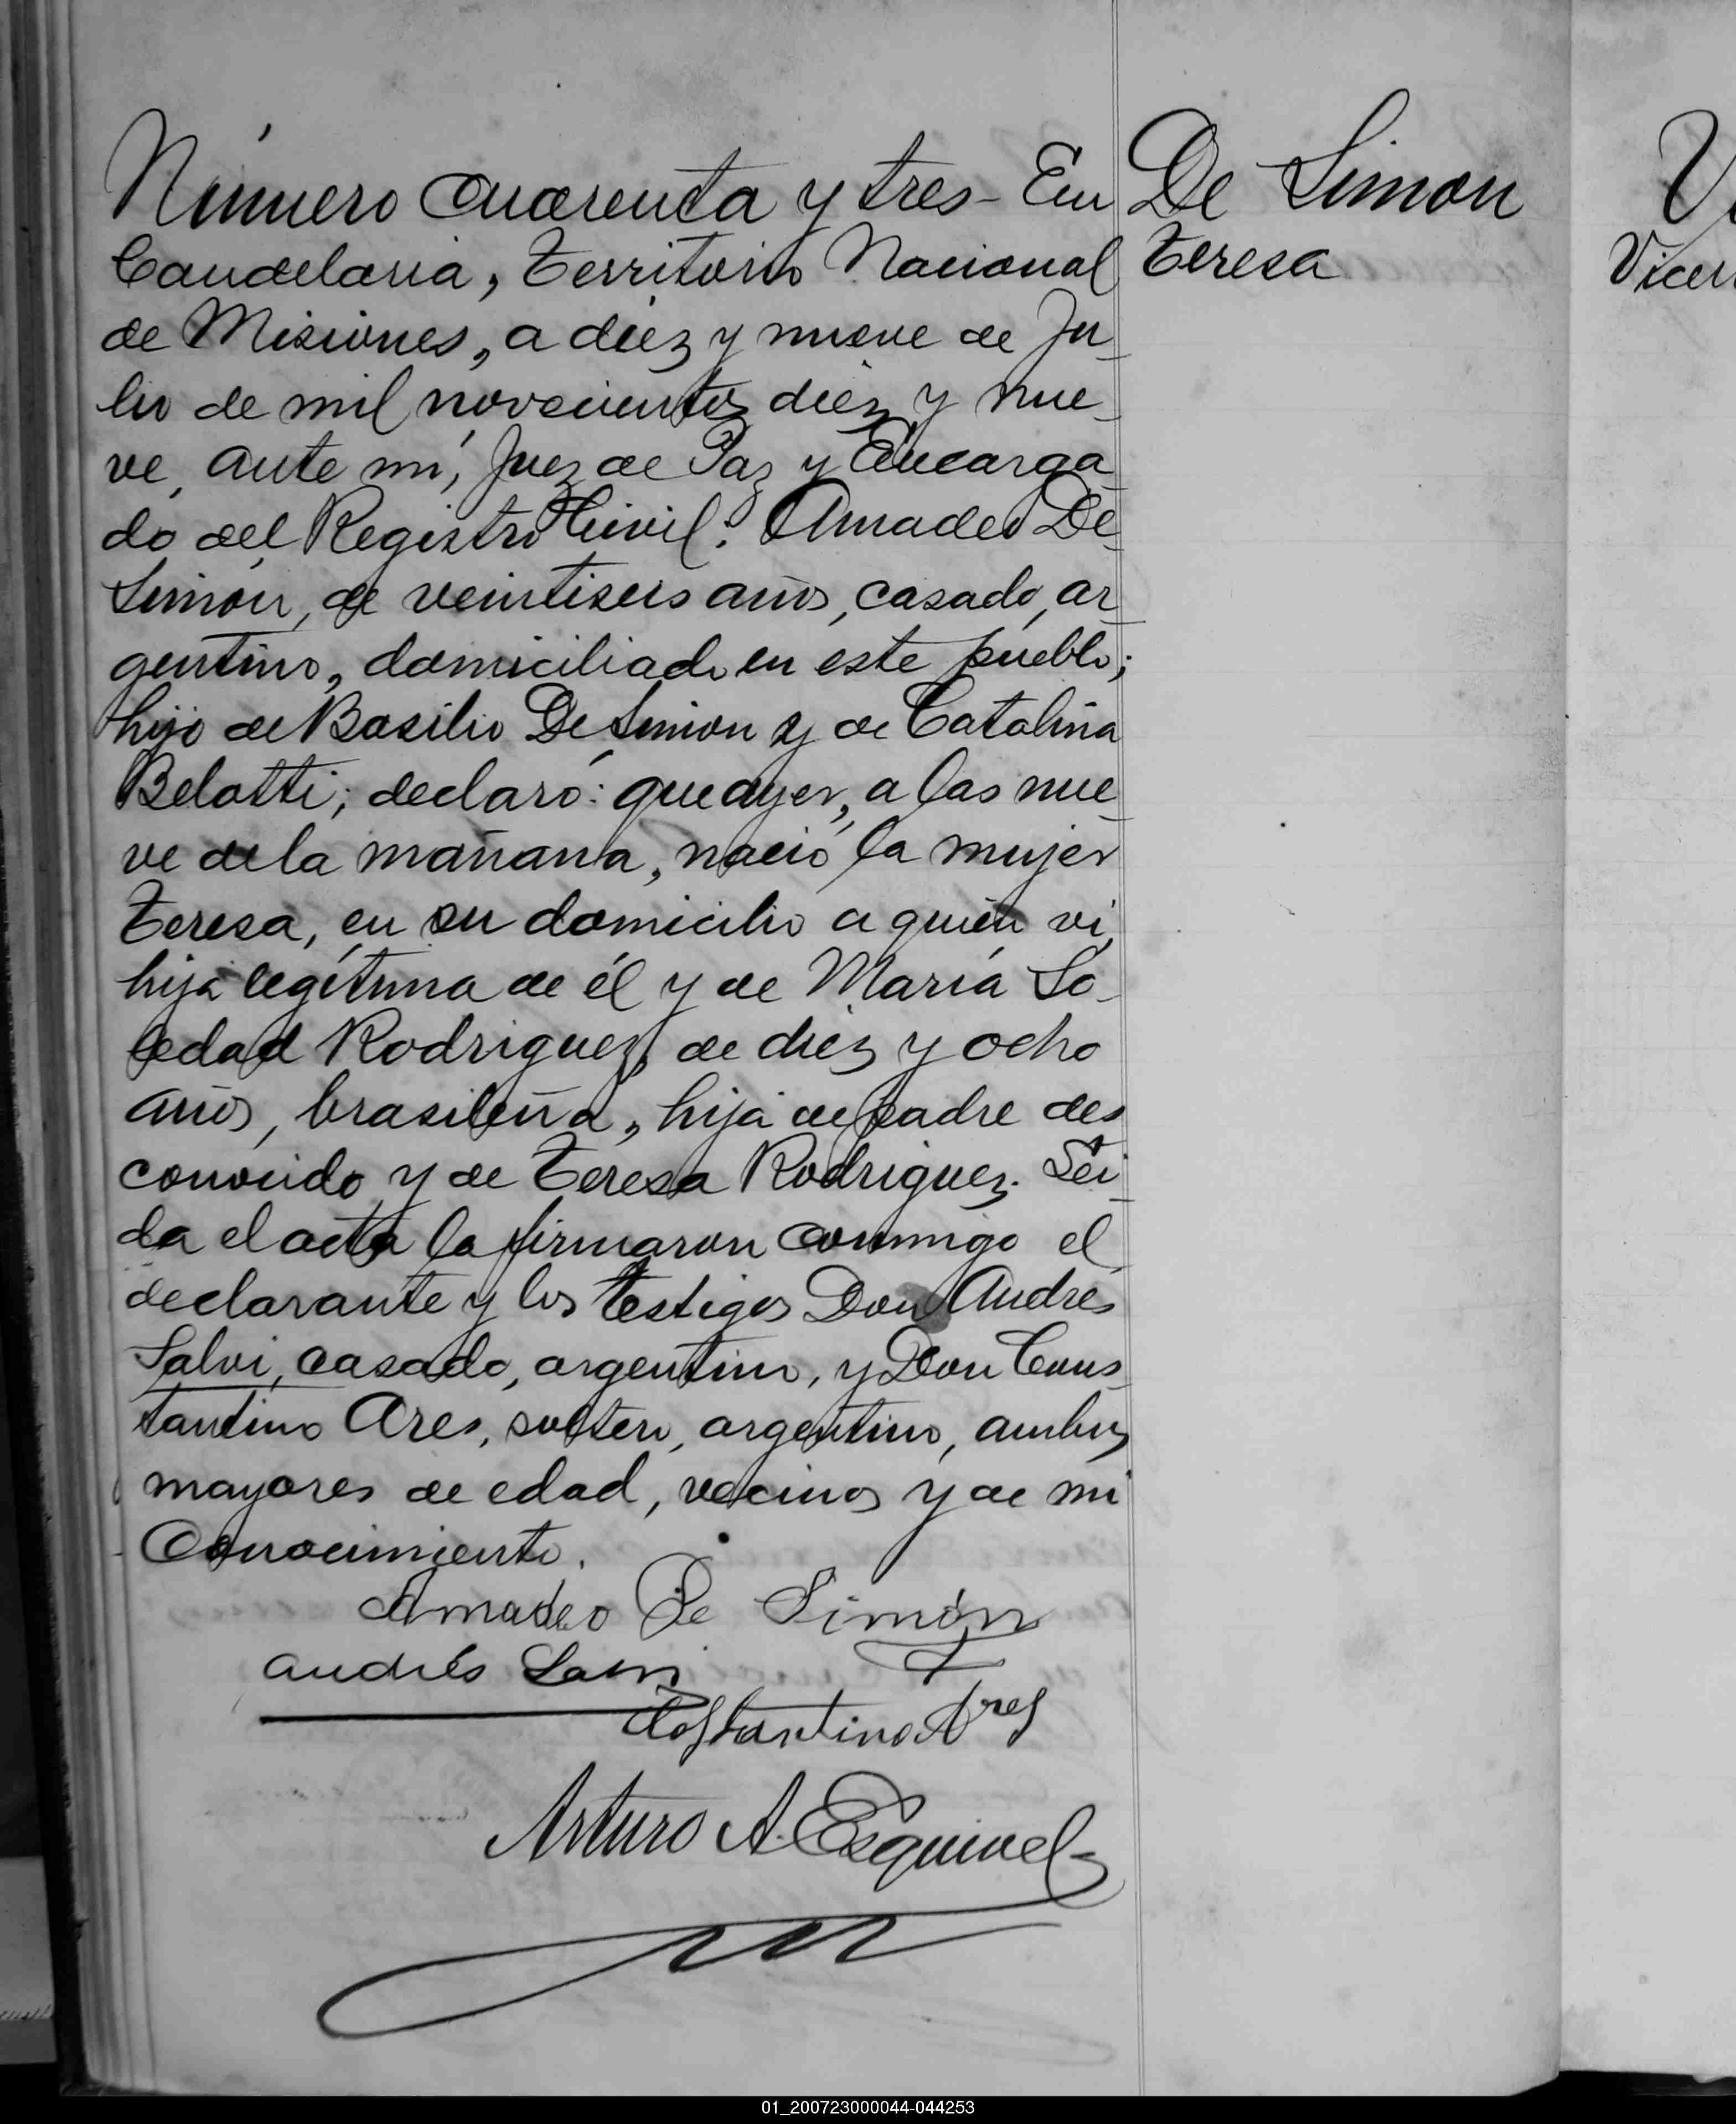 Número cuarenta y tres - En
Candelaria, Territorio Nacional
de Misiones, a diez y nueve de Ju-
lio de mil novecientos diez y nue-
ve, ante mí, Juez de Paz y Encarga-
do del Registro Civil: Amadeo De
Simón, de veintiseis años, casado, ar-
gentino, domiciliado en este pueblo;
hijo de Basilio De Simon y de Catalina
Belotti; declaró: que ayer, a las nue-
ve de la mañana, nació la mujer
Teresa, en su domicilio a quién vi,
hija legítima de él y de María So-
ledad Rodriguez, de diez y ocho
años, brasileña, hija de padre des-
conocido y de Teresa Rodriguez. Lei-
da el acta la firmaron conmigo el
declarante y los testigos Don Andrés
Salvi, casado, argentino, y Don Cons-
tantino Ares, soltero, argentino, ambos
mayores de edad, vecinos y de mi
conocimiento.
Amadeo De Simón
Andrés Salvi
Costantino Ares
Arturo A. Esquivel
De Simon
Teresa
01_200723000044-044253